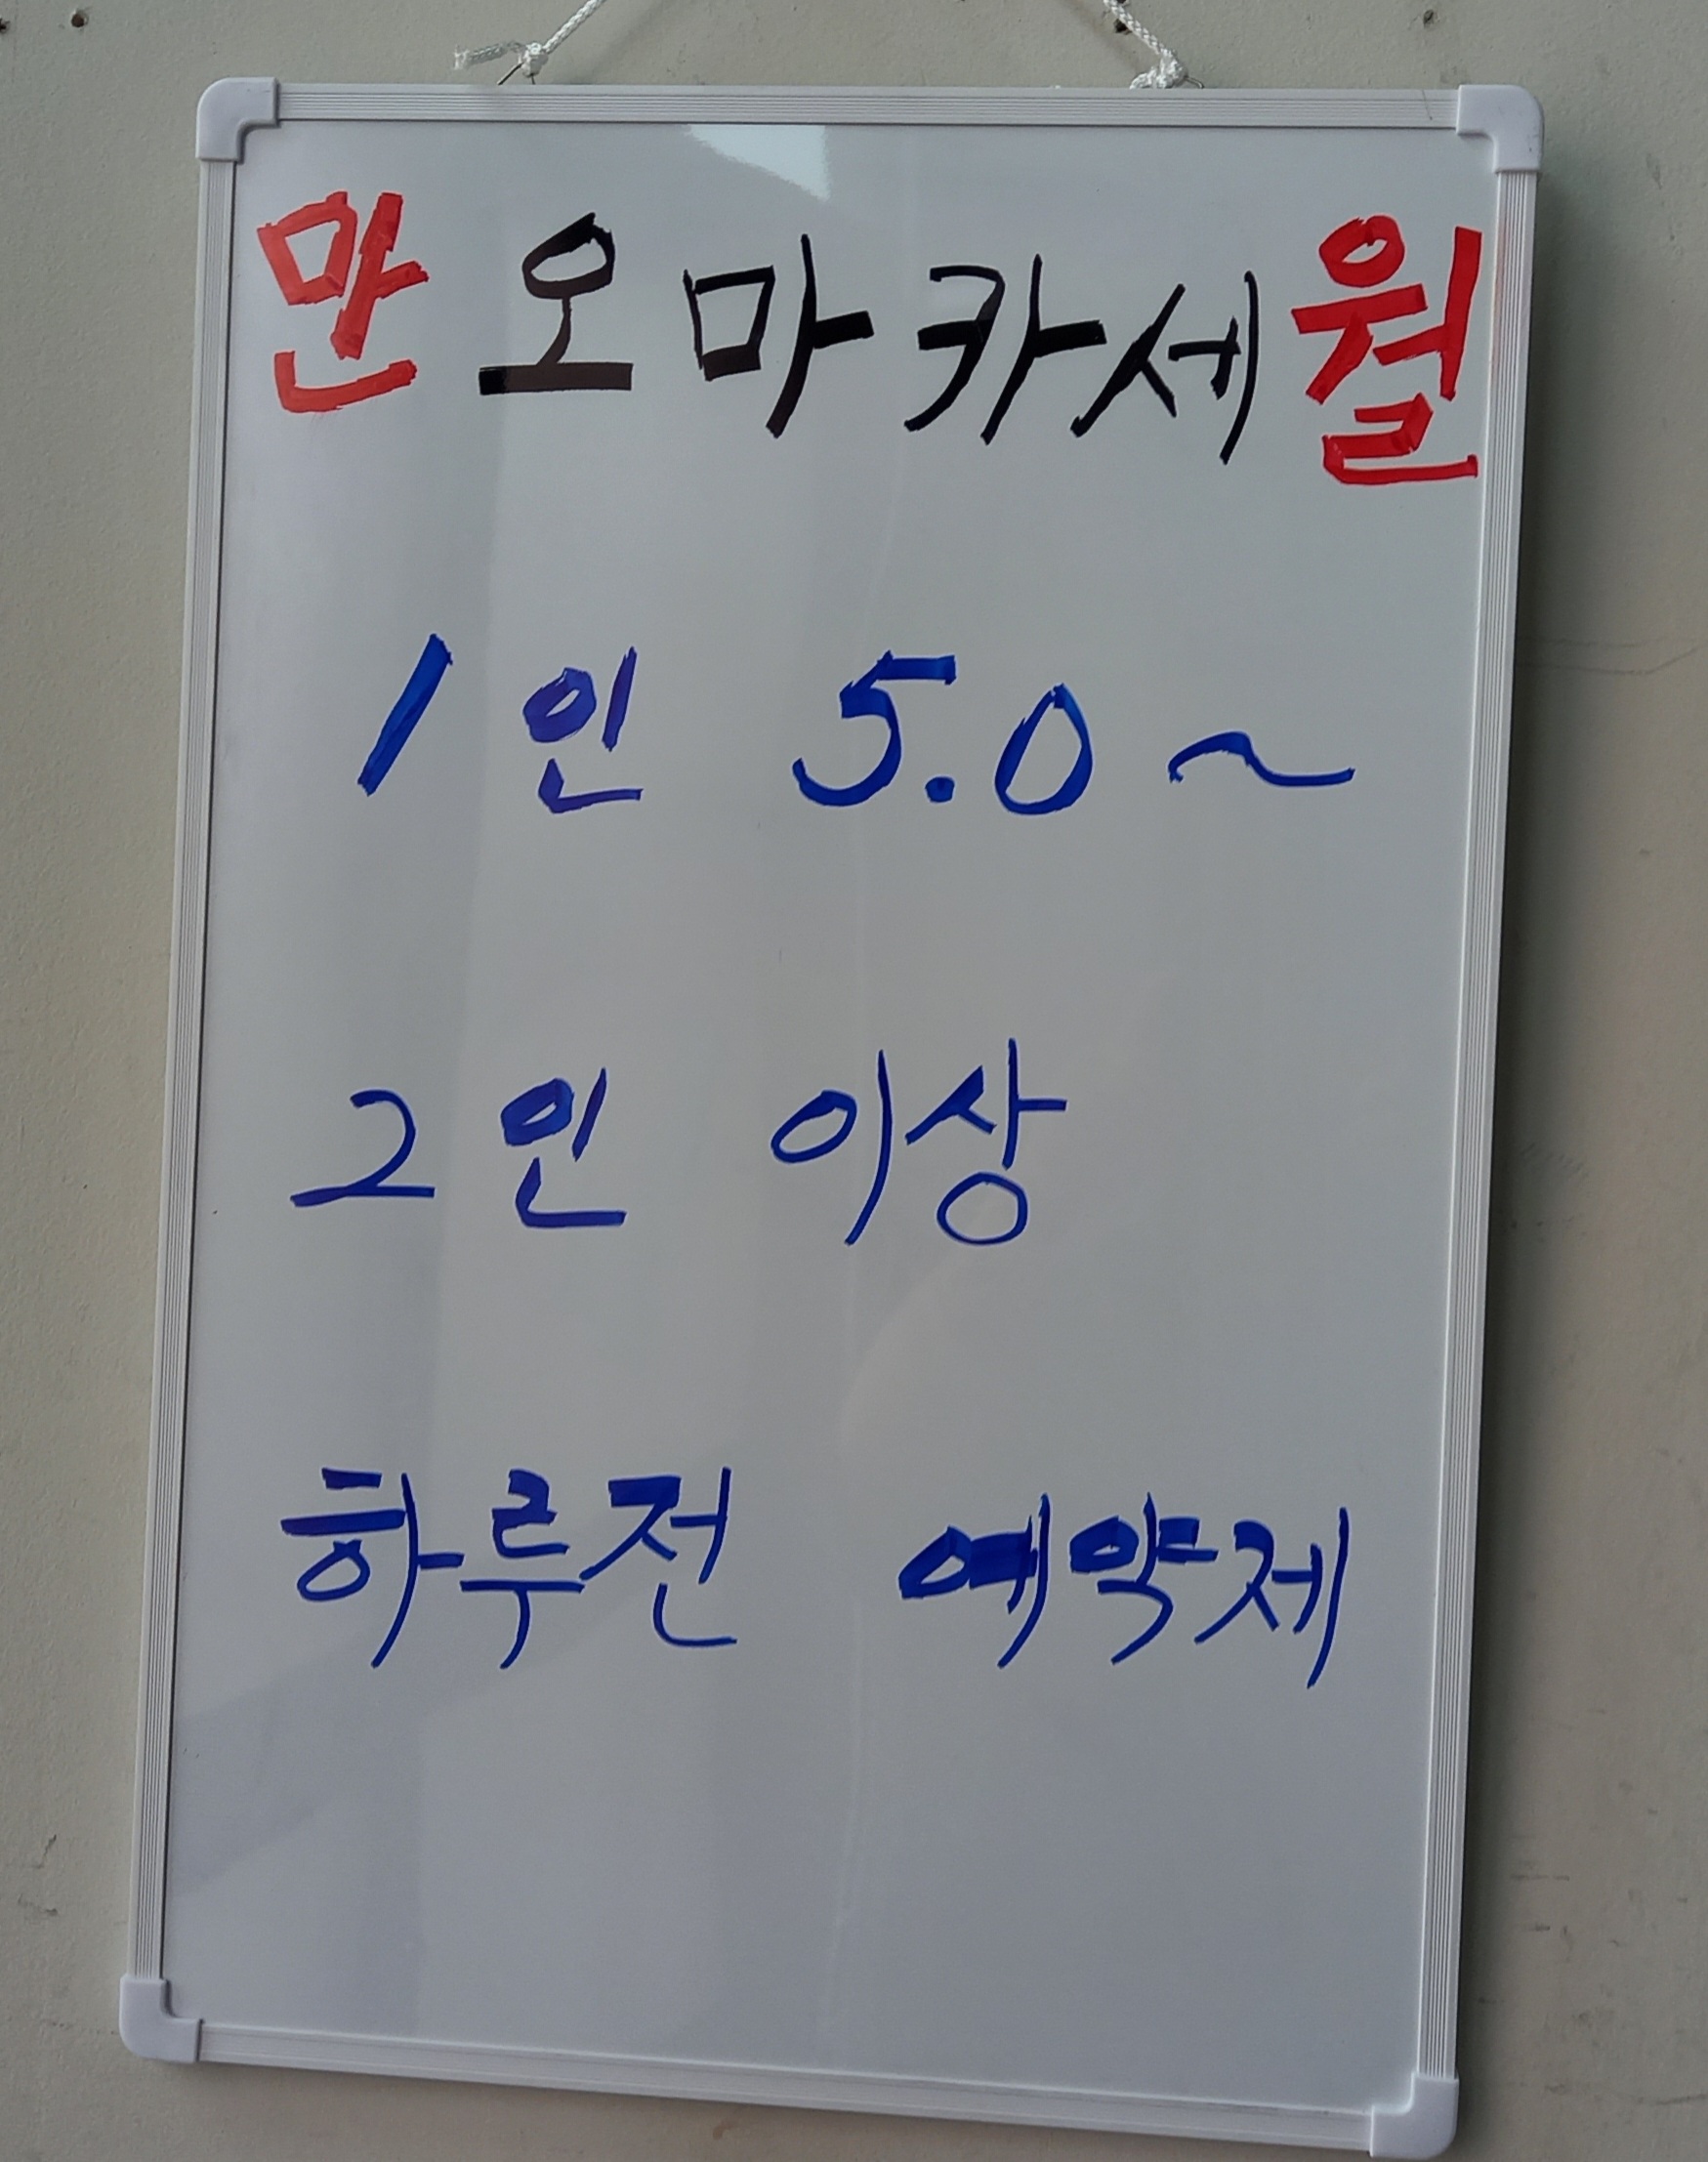 만 오마카세 월
1인 5.0~
2인 이상
하루전 예약제